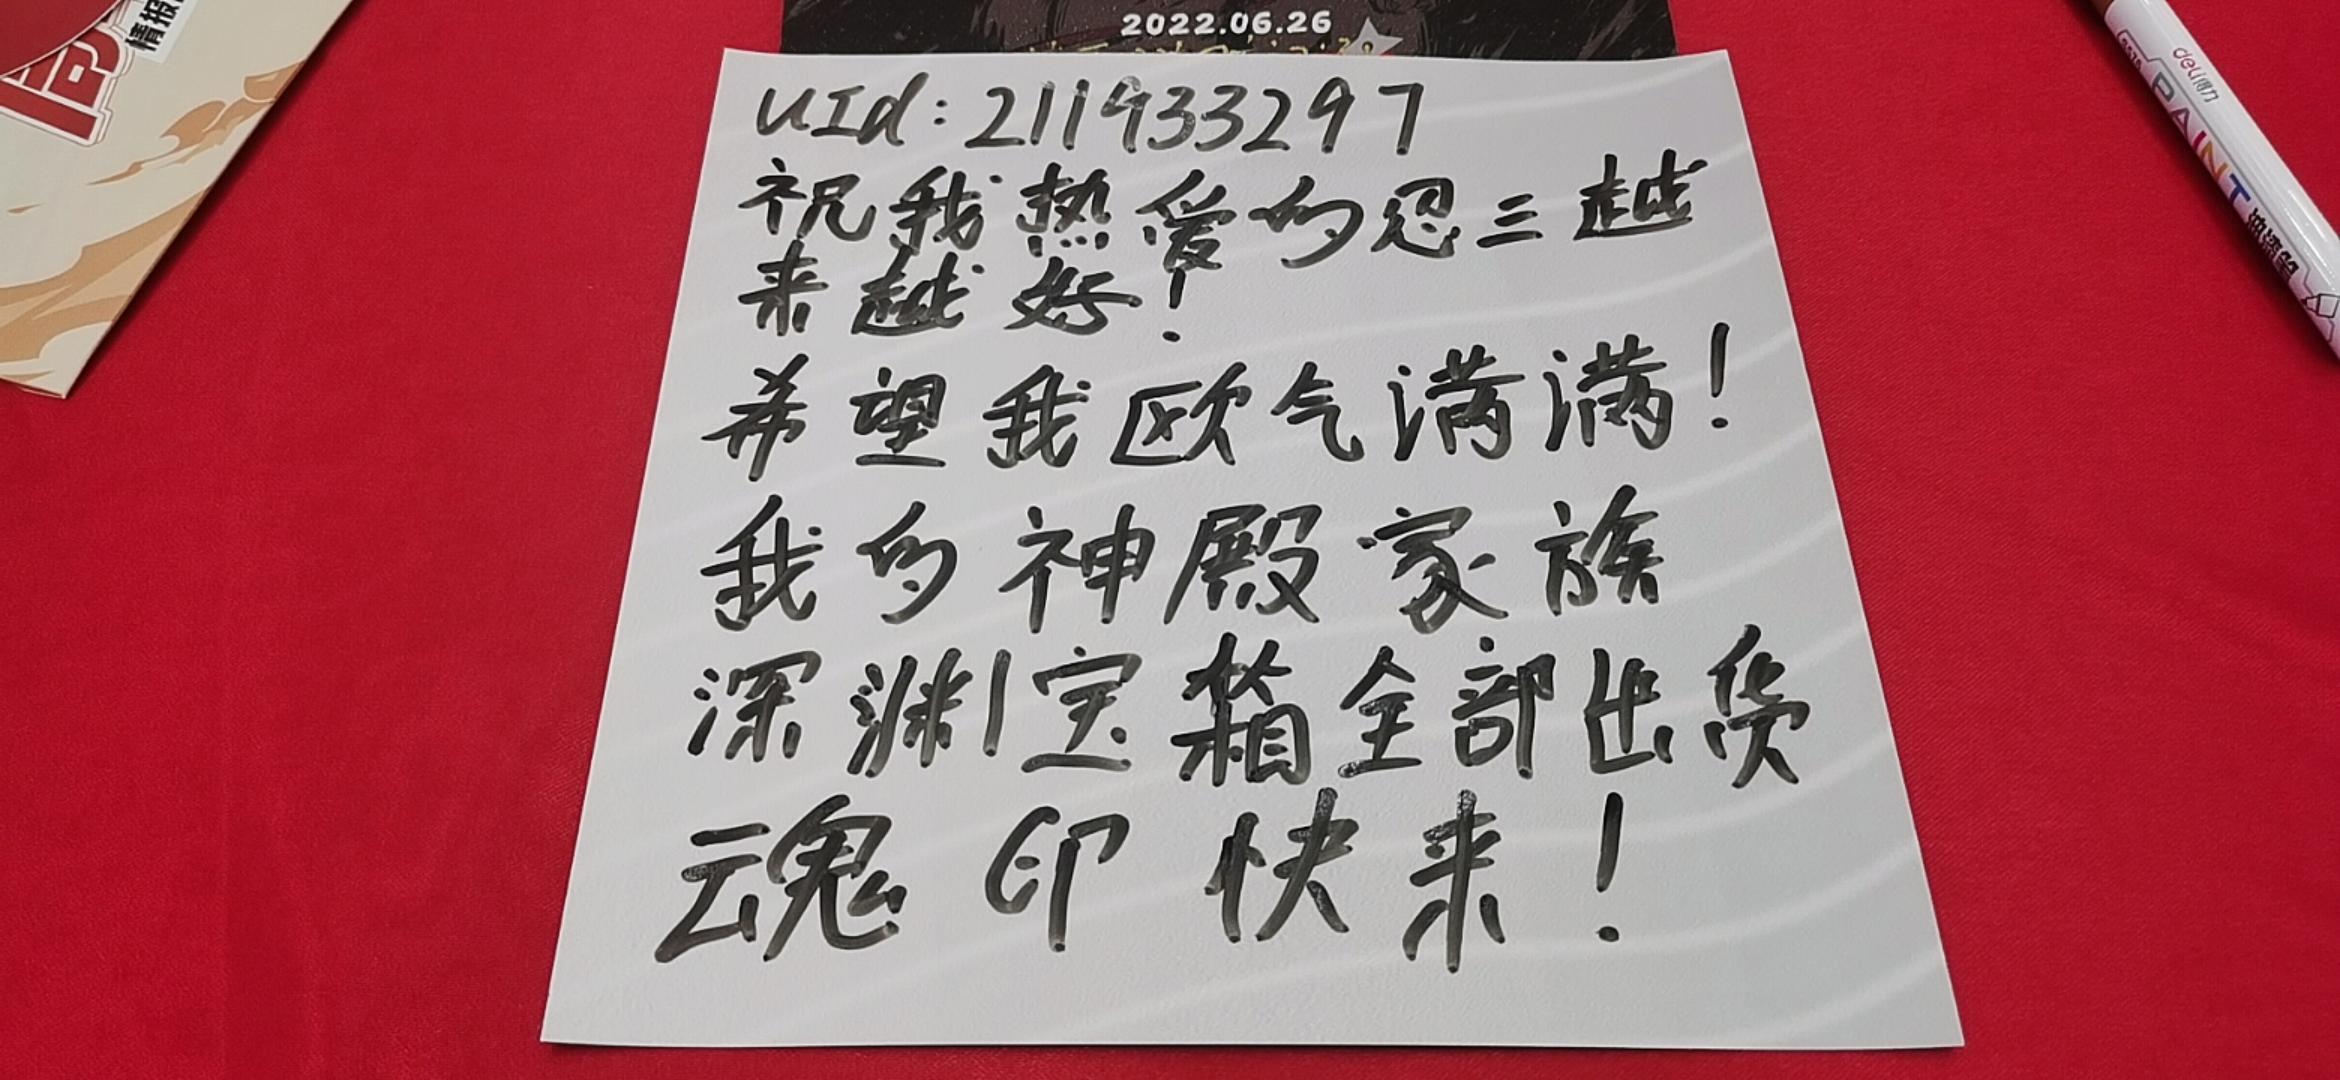 情报
2022.06.26
UId:211933297
祝我热爱的忍三越
来越好!
希望我欧气满满!
我的神殿家族
深渊宝箱全部出货
魂印快来!
deli得力
PAINT
油漆笔